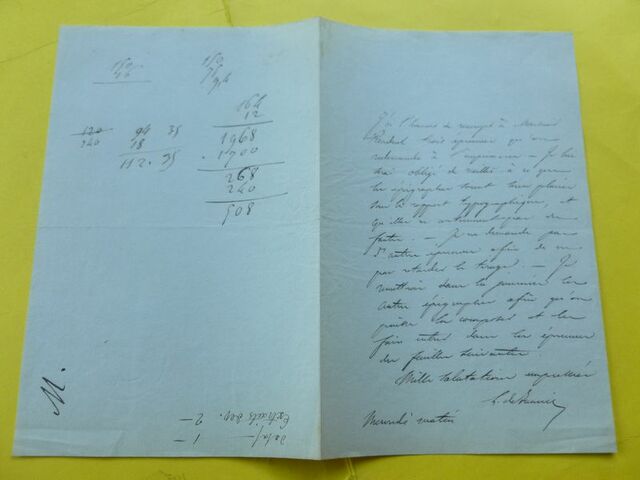 164
12
1968
1700
268
240
508
94 35
18
112.35
120
240
M.
J'ai l'honneur de renvoyer à Monsieur
trois épreuves qu'on
redemande à l'imprimerie — Je lui
serai obligé de veiller à ce que
les épigraphes soient bien placées
sous le rapport typographique, et
qu'elles ne contiennent pas de
fautes. — Je ne demande pas
d'autre épreuve afin de ne
pas retarder le tirage. — Je
mettrai dans la journée les
autres épigraphes afin qu'on
puisse les composer et les
faire entrer dans les épreuves
des feuilles suivantes
Mille salutations empressées
Mercredi matin
Extraits 2 —
1 —